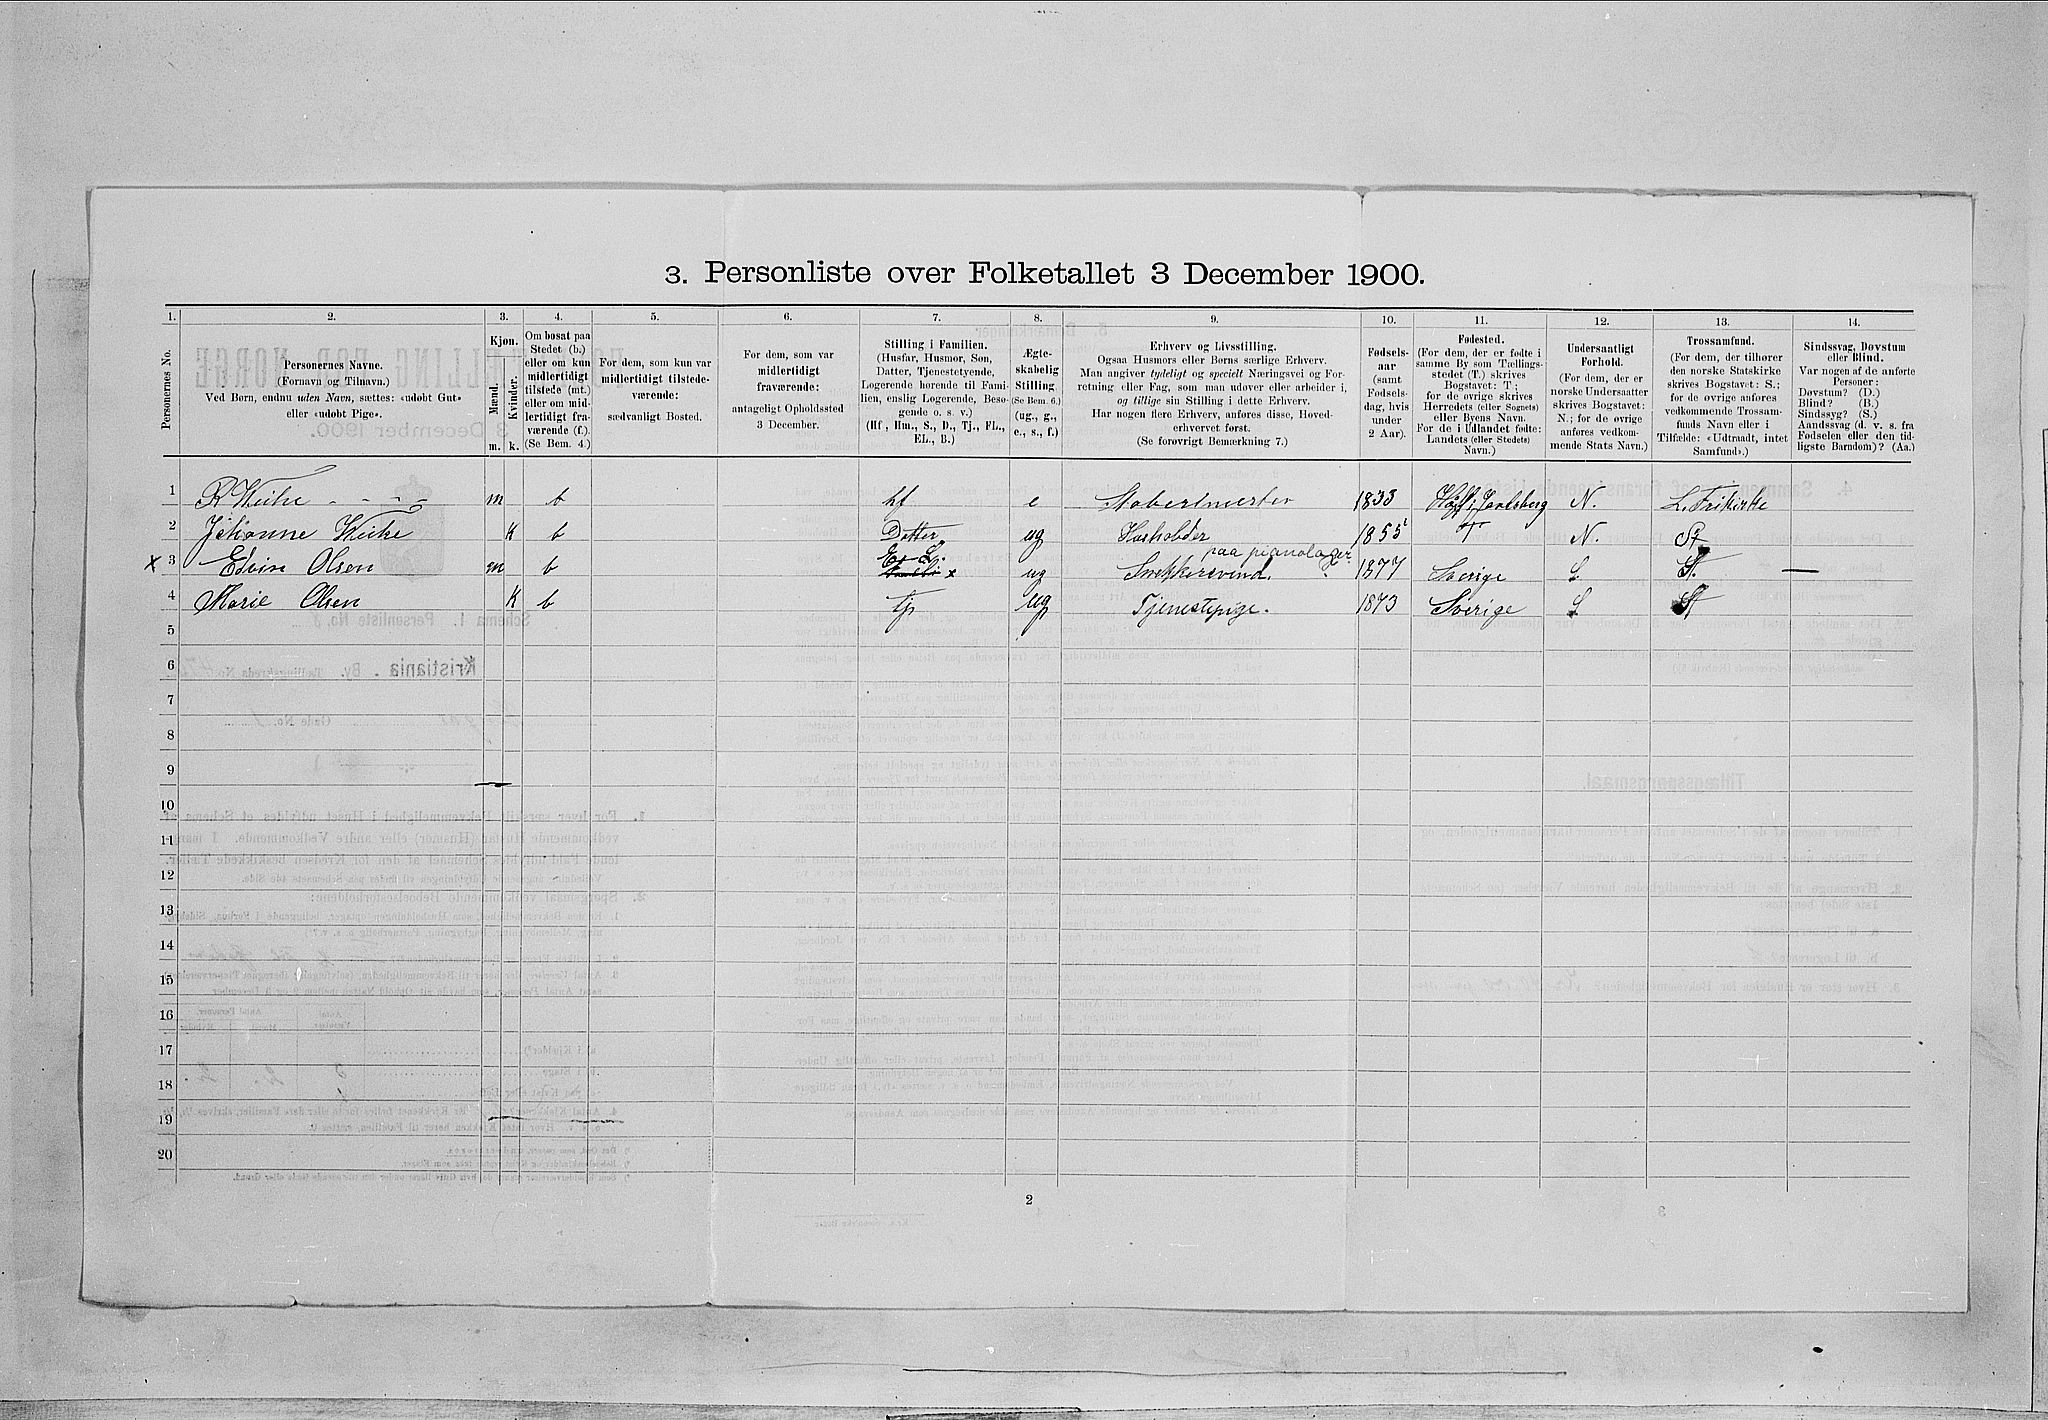 3. Personliste over Folketallet 3 December 1900.
1. 2. 3. 4. 5. 6. 7. 8. 9. 10. 11. 12. 13. 14.
Personernes No.
Personernes Navne.
(Fornavn og Tilnavn.)
Ved Børn, endnu uden Navn, sættes: «udøbt Gut»
eller «udøbt Pige».
Kjøn.
Mænd.
Kvinder.
m. k.
Om bosat paa
Stedet (b.)
eller om kun
midlertidigt
tilstede (mt.)
eller om mid-
lertidigt fra-
værende (f.).
(Se Bem. 4.)
For dem, som kun var
midlertidigt tilstede-
værende:
sædvanligt Bosted.
For dem, som var
midlertidigt
fraværende:
antageligt Opholdssted
3 December.
Stilling i Familien.
(Husfar, Husmor, Søn,
Datter, Tjenestetyende,
Logerende hørende til Fami-
lien, enslig Logerende, Besø-
gende o. s. v.)
(Hf., Hm., S., D., Tj., FL.,
EL., B.)
Ægte-
skabelig
Stilling.
(Se Bem. 6.)
(ug., g.,
e., s., f.)
Erhverv og Livsstilling.
Ogsaa Husmors eller Børns særlige Erhverv.
Man angiver tydeligt og specielt Næringsvei og For-
retning eller Fag, som man udøver eller arbeider i,
og tillige sin Stilling i dette Erhverv.
Har nogen flere Erhverv, anføres disse, Hoved-
erhvervet først.
(Se forøvrigt Bemærkning 7.)
Fødsels-
aar
(samt
Fødsels-
dag, hvis
under
2 Aar).
Fødested.
(For dem, der er fødte i
samme By som Tællings-
stedet (T.) skrives
Bogstavet: T;
for de øvrige skrives
Herredets (eller Sognets)
eller Byens Navn.
For de i Udlandet fødte:
Landets (eller Stedets)
Navn.)
Undersaatligt
Forhold.
(For dem, der er
norske Undersaatter
skrives Bogstavet:
N.; for de øvrige
anføres vedkom-
mende Stats Navn.)
Trossamfund.
(For dem, der tilhører
den norske Statskirke
skrives Bogstavet: S.;
for de øvrige anføres
vedkommende Trossam-
funds Navn eller i
Tilfælde: «Udtraadt, intet
Samfund».)
Sindssvag, Døvstum
eller Blind.
Var nogen af de anførte
Personer:
Døvstum? (D.)
Blind? (B.)
Sindssyg? (S.)
Aandssvag (d. v. s. fra
Fødselen eller den tid-
ligste Barndom)? (Aa.)
1 m b hf e 1833 N. L. Frikirke
2 Johanne k b Datter ug 1855 T N.
x 3 Edvin Olsen m b E. L. x ug Snekkersvend. paa pianolager 1877 Sverige S
4 Marie Olsen k b tj ug Tjenestepige. 1873 Sverige S
5
6
7
8
9
10
11
12
13
14
15
16
17
18
19
20
2